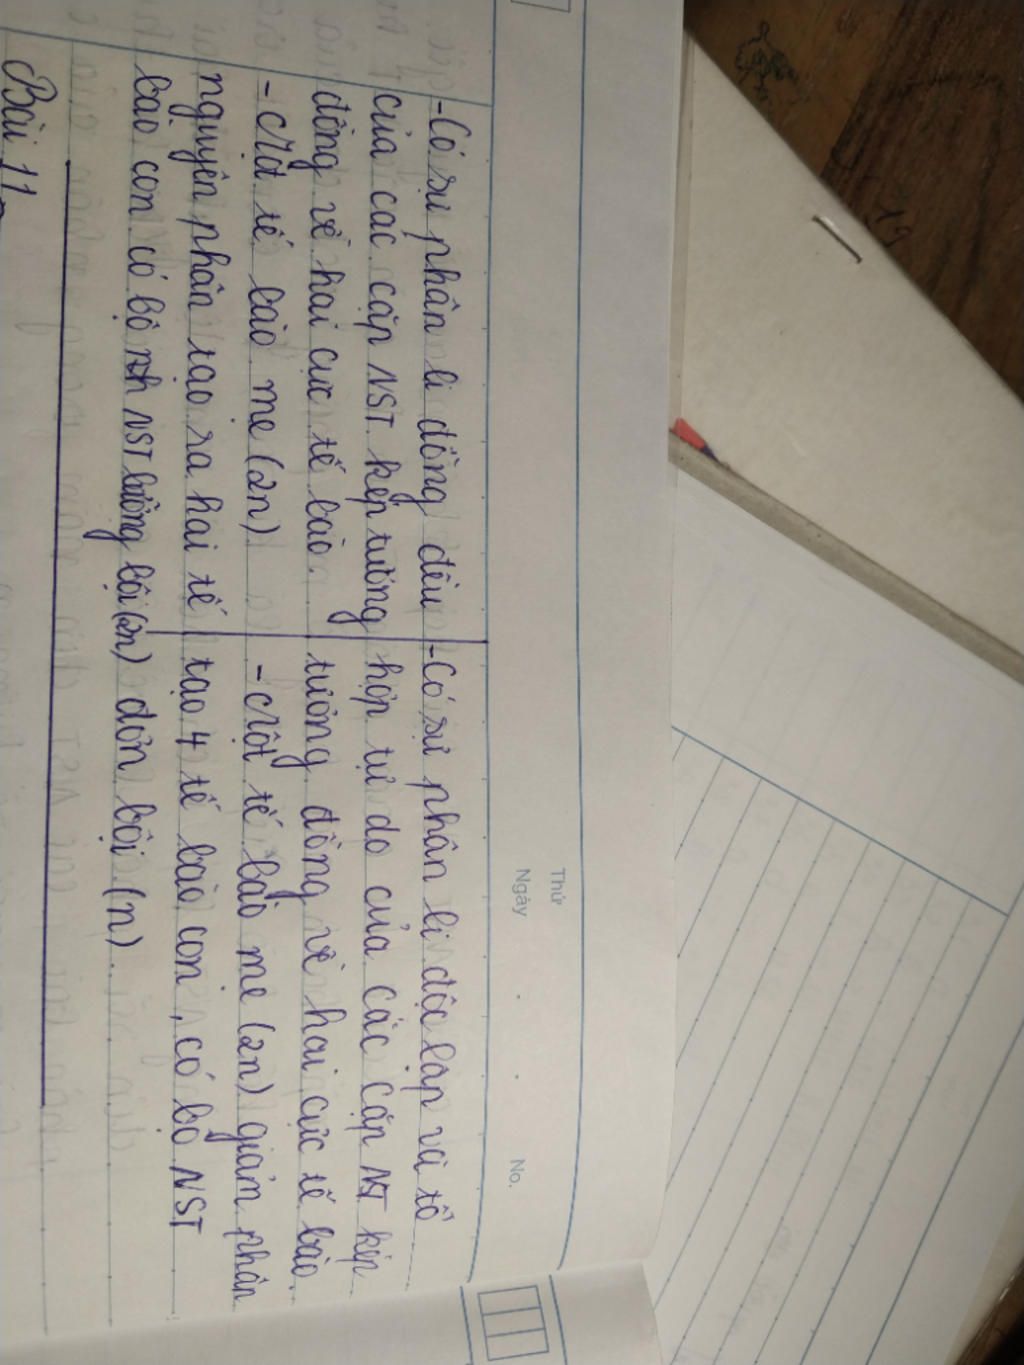 Thứ
Ngày
No.
-Có sự phân li đồng đều
của các cặp NST kép tương
đồng về hai cực tế bào.
- Một tế bào mẹ (2n)
nguyên phân tạo ra hai tế
bào con có bộ NST lưỡng bội (2n)
-Có sự phân li độc lập và tổ
hợp tự do của các cặp NST kép
tương đồng về hai cực tế bào.
- Một tế bào mẹ (2n) giảm phân
tạo 4 tế bào con, có bộ NST
đơn bội (n).
Bài 11